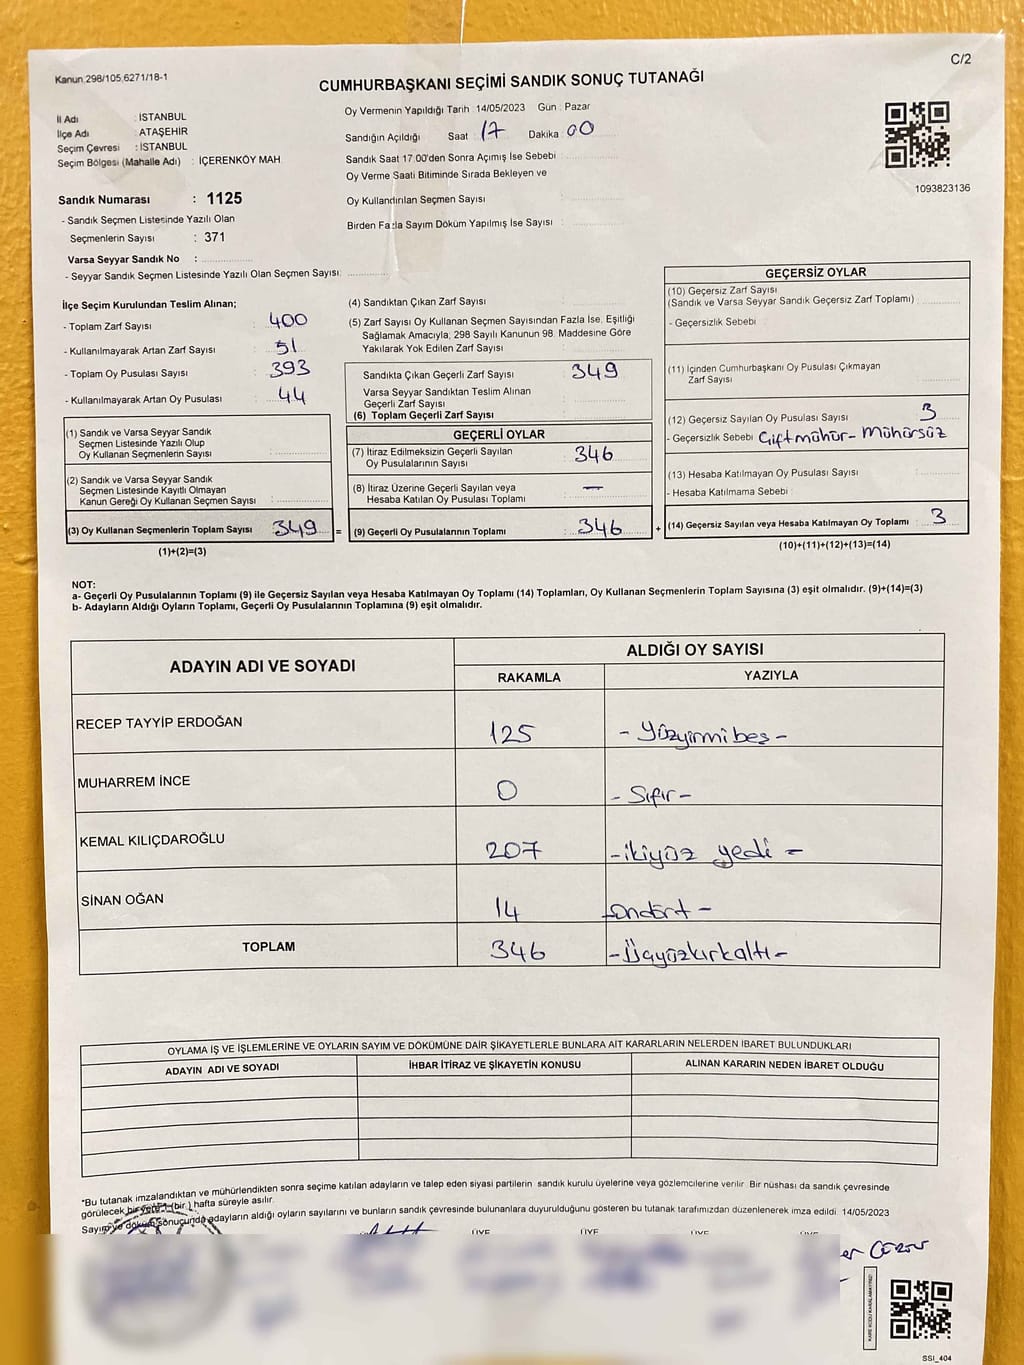 Kanun.298/105,6271/18-1
C/2
CUMHURBAŞKANI SEÇİMİ SANDIK SONUÇ TUTANAĞI
İl Adı : İSTANBUL
İlçe Adı : ATAŞEHİR
Seçim Çevresi : İSTANBUL
Seçim Bölgesi (Mahalle Adı) : İÇERENKÖY MAH
Oy Vermenin Yapıldığı Tarih : 14/05/2023 Gün : Pazar
Sandığın Açıldığı Saat 17 Dakika 00
Sandık Saat 17:00'den Sonra Açımış İse Sebebi
Oy Verme Saati Bitiminde Sırada Bekleyen ve
Oy Kullandırılan Seçmen Sayısı
Birden Fazla Sayım Döküm Yapılmış İse Sayısı
1093823136
Sandık Numarası : 1125
- Sandık Seçmen Listesinde Yazılı Olan
Seçmenlerin Sayısı : 371
Varsa Seyyar Sandık No :
- Seyyar Sandık Seçmen Listesinde Yazılı Olan Seçmen Sayısı:
İlçe Seçim Kurulundan Teslim Alınan;
- Toplam Zarf Sayısı : 400
- Kullanılmayarak Artan Zarf Sayısı : 51
- Toplam Oy Pusulası Sayısı : 393
- Kullanılmayarak Artan Oy Pusulası : 44
(1) Sandık ve Varsa Seyyar Sandık
Seçmen Listesinde Yazılı Olup
Oy Kullanan Seçmenlerin Sayısı
(2) Sandık ve Varsa Seyyar Sandık
Seçmen Listesinde Kayıtlı Olmayan
Kanun Gereği Oy Kullanan Seçmen Sayısı
(3) Oy Kullanan Seçmenlerin Toplam Sayısı 349 =
(1)+(2)=(3)
(4) Sandıktan Çıkan Zarf Sayısı
(5) Zarf Sayısı Oy Kullanan Seçmen Sayısından Fazla İse, Eşitliği
Sağlamak Amacıyla; 298 Sayılı Kanunun 98. Maddesine Göre
Yakılarak Yok Edilen Zarf Sayısı
Sandıkta Çıkan Geçerli Zarf Sayısı : 349
Varsa Seyyar Sandıktan Teslim Alınan
Geçerli Zarf Sayısı
(6) Toplam Geçerli Zarf Sayısı
GEÇERLİ OYLAR
(7) İtiraz Edilmeksizin Geçerli Sayılan
Oy Pusulalarının Sayısı : 346
(8) İtiraz Üzerine Geçerli Sayılan veya
Hesaba Katılan Oy Pusulası Toplamı : —
(9) Geçerli Oy Pusulalarının Toplamı : 346 +
GEÇERSİZ OYLAR
(10) Geçersiz Zarf Sayısı
(Sandık ve Varsa Seyyar Sandık Geçersiz Zarf Toplamı)
- Geçersizlik Sebebi
(11) İçinden Cumhurbaşkanı Oy Pusulası Çıkmayan
Zarf Sayısı
(12) Geçersiz Sayılan Oy Pusulası Sayısı : 3
- Geçersizlik Sebebi Çiftmühür - Mühürsüz
(13) Hesaba Katılmayan Oy Pusulası Sayısı
- Hesaba Katılmama Sebebi
(14) Geçersiz Sayılan veya Hesaba Katılmayan Oy Toplamı : 3
(10)+(11)+(12)+(13)=(14)
NOT:
a- Geçerli Oy Pusulalarının Toplamı (9) ile Geçersiz Sayılan veya Hesaba Katılmayan Oy Toplamı (14) Toplamları, Oy Kullanan Seçmenlerin Toplam Sayısına (3) eşit olmalıdır. (9)+(14)=(3)
b- Adayların Aldığı Oyların Toplamı, Geçerli Oy Pusulalarının Toplamına (9) eşit olmalıdır.
ADAYIN ADI VE SOYADI ALDIĞI OY SAYISI
RAKAMLA YAZIYLA
RECEP TAYYİP ERDOĞAN 125 - Yüzyirmibeş -
MUHARREM İNCE 0 - Sıfır -
KEMAL KILIÇDAROĞLU 207 - ikiyüz yedi -
SİNAN OĞAN 14 - ondört -
TOPLAM 346 - Üçyüzkırkaltı -
OYLAMA İŞ VE İŞLEMLERİNE VE OYLARIN SAYIM VE DÖKÜMÜNE DAİR ŞİKAYETLERLE BUNLARA AİT KARARLARIN NELERDEN İBARET BULUNDUKLARI
ADAYIN ADI VE SOYADI İHBAR İTİRAZ VE ŞİKAYETİN KONUSU ALINAN KARARIN NEDEN İBARET OLDUĞU
"Bu tutanak imzalandıktan ve mühürlendikten sonra seçime katılan adayların ve talep eden siyasi partilerin sandık kurulu üyelerine veya gözlemcilerine verilir. Bir nüshası da sandık çevresinde
görülecek bir yere 1 (bir ) hafta süreyle asılır.
Sayım ve döküm sonuçunda adayların aldığı oyların sayılarını ve bunların sandık çevresinde bulunanlara duyurulduğunu gösteren bu tutanak tarafımızdan düzenlenerek imza edildi. 14/05/2023
ÜYE ÜYE ÜYE ÜYE
KARE KODU KARALAMAYINIZ!
SSI_404